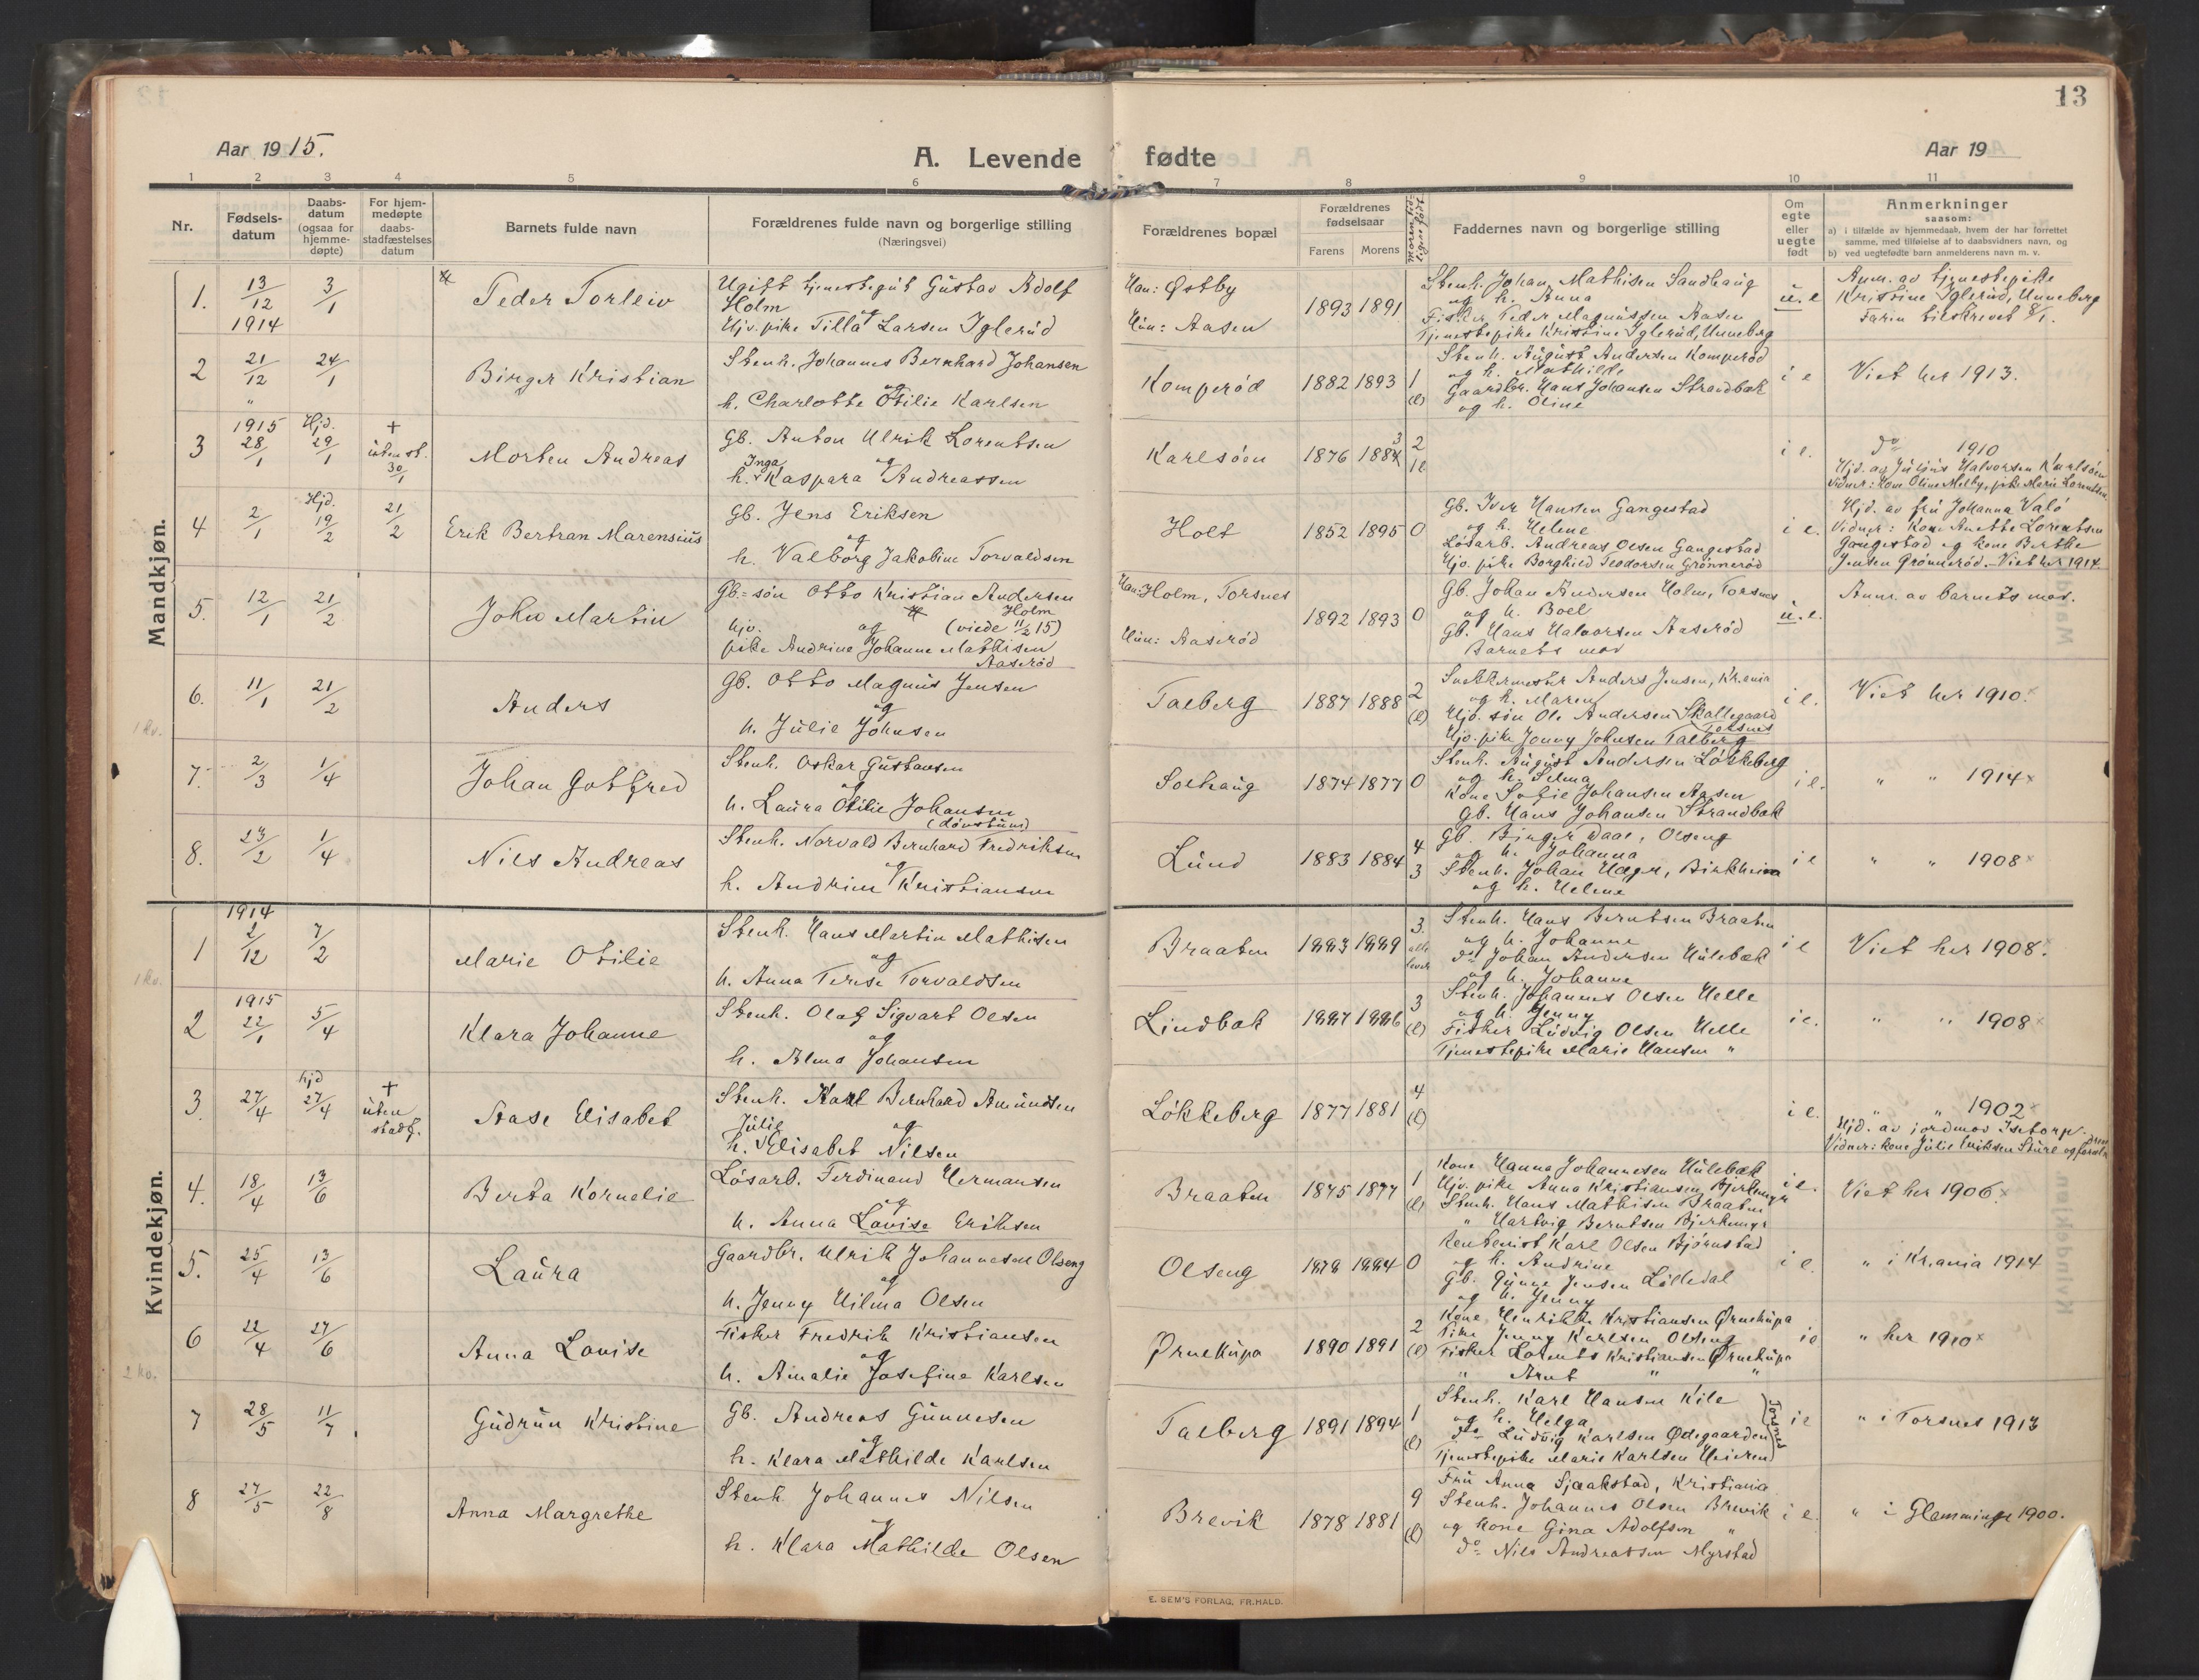 13
Aar 1915.
A. Levende fødte
Aar 19
1 2 3 4 5 6 7 8 9 10 11
Nr.
Fødsels-
datum
Daabs-
datum
(ogsaa for
hjemme-
døpte)
For hjem-
medøpte
daabs-
stadfæstelses
datum
Barnets fulde navn
Forældrenes fulde navn og borgerlige stilling
(Næringsvei)
Forældrenes bopæl
Forældrenes
fødselsaar
Farens Morens
Faddernes navn og borgerlige stilling
Om
egte
eller
uegte
født
Anmerkninger
saasom:
a) i tilfælde av hjemmedaab, hvem der har forrettet
samme, med tilføielse af to daabsvidners navn, og
b) ved uegtefødte barn anmelderens navn m. v.
Mandkjøn.
1. 13/12 1914 3/1
Peder Torleiv
Ugift tjenestegut Gustav Adolf
Holm
og
Hjv. pike Tilla Larsen Iglerud
Han: Østby
Hun: Aasen
1893 1891
Stenh. Johan Mathisen Sandhaug
og h. Anna
Fisker Peder Magnussen Aasen
Tjenestepike Kristine Iglerud, Unneberg
u. e
Anm. av tjenestepike
Kristine Iglerud, Unneberg
Faren tilskrevet 8/1.
2 21/12 " 24/1
Birger Kristian
Stenh. Johannes Bernhard Johansen
og
h. Charlotte Otilie Karlsen
Komperød
1882 1893 1 (l)
Stenh. August Andersen Komperød
og h. Mathilde
Gaardbr. Hans Johansen Strandbak
og h. Oline
i e
Viet her 1913.
3 1915 28/1 Hjd. 29/1 + uten st. 30/1
Morten Andreas
Gb. Anton Ulrik Lorentsen
og
h. Inga Kaspara Andreassen
Karlsøen
1876 1883 2 1l
i e.
do 1910
Hjd. av Julius Halvorsen Karlsøen
Vidner: Kone Oline Melby, pike Marie Lorentsen.
4 2/1 Hjd. 19/2 21/2
Erik Bertran Marensius
Gb. Jens Eriksen
og
h. Valborg Jakobine Torvaldsen
Holt
1852 1895 0
Gb. Iver Hansen Gangestad
og h. Helene
Løsarb. Andreas Olsen Gangestad
Hjv. pike Borghild Teodorsen Grønnerød
i e.
Hjd. av fru Johanna Valø
Vidner: Kone Anette Lorentsen
Gangestad og kone Berthe
Jensen Grønnerød. Viet her 1914.
5. 12/1 21/2
John Martin
Gb.=søn Otto Kristian Andersen
Holm
og (viede 11/2 15)
Hjv.
pike Andrine Johanne Mathisen
Aaserød
Han: Holm, Torsnes
Hun: Aaserød
1892 1893 0
Gb. Johan Andersen Holm, Torsnes
og h. Boel
Gb. Hans Halvorsen Aaserød
Barnets mor
u. e.
Anm. av barnets mor.
6. 11/1 21/2
Anders
Gb. Otto Magnus Jensen
og
h. Julie Johnsen
Talberg
1887 1888 2 (l)
Snekkermester Anders Jensen, Kr.ania
og h. Maren
Hjv. søn Ole Andersen Skallegaard
Torsnes
Hjv. pike Jenny Johnsen Talberg
i e.
Viet her 1910.
7. 2/3 1/4
Johan Gotfred
Stenh. Oskar Gustavsen
og
h. Laura Otilie Johansen
(døvstum)
Solhaug
1874 1877 0
Stenh. August Andersen Løkkeberg
og h. Selma
Kone Sofie Johansen Aasen
Gb. Hans Johansen Strandbak
i e.
" " 1914
8. 23/2 1/4
Nils Andreas
Stenh. Norvald Bernhard Fredriksen
og
h. Andrine Kristiansen
Lund
1883 1884 4 3
Gb. Birger Daae, Olseng
og h. Johanna
Stenh. Johan Hager, Birkheim
og h. Helene
i e
" " 1908
Kvindekjøn.
1 1914 2/12 7/2
Marie Otilie
Stenh. Hans Martin Mathisen
og
h. Anna Terese Torvaldsen
Braaten
1883 1889 3. alle lever
Stenh. Hans Berntsen Braaten
og h. Johanne
do Johan Andersen Hulebæk
og h. Johanne
i e
Viet her 1908.
2 1915 22/1 5/4
Klara Johanne
Stenh. Olaf Sigvart Olsen
og
h. Alma Johansen
Lindbak
1887 1886 3 (l)
Stenh. Johannes Olsen Helle
og h. Jenny
Fisker Ludvig Olsen Helle
Tjenestepike Marie Hansen "
i e.
" " 1908
3. 27/4 hjd 27/4 + uten stadf.
Aase Elisabet
Stenh. Karl Bernhard Amundsen
og
h. Julie Elisabet Nilsen
Løkkeberg
1877 1881 4 (l)
i e.
" " 1902
Hjd. av jordmor Isetorp.
Vidner: Kone Julie Eriksen Sture og faren
4. 18/4 13/6
Berta Kornelie
Løsarb. Ferdinand Hermansen
og
h. Anna Lovise Eriksen
Braaten
1875 1877 1 (l)
Kone Hanna Johannesen Hulebæk
Hjv. pike Anna Kristiansen Bjerkemyr
Stenh. Hans Mathisen Braaten
" Hartvig Berntsen Bjerkemyr
i e.
Viet her 1906.
5. 25/4 13/6
Laura
Gaardbr. Ulrik Johannesen Olseng
og
h. Jenny Hilma Olsen
Olseng
1878 1884 0
Rentenist Karl Olsen Bjørnstad
og h. Andrine
Gb. Gunne Jensen Lilledal
og h. Jenny
i e.
" i Kr.ania 1914
6 22/4 27/6
Anna Lovise
Fisker Fredrik Kristiansen
og
h. Amalie Josefine Karlsen
Ørnekupa
1890 1891 2 (l)
Kone Henrikke Kristiansen Ørnekupa
Pike Jenny Karlsen Olseng
Fisker Lorents Kristiansen Ørnekupa
" Arnt " "
i e
" her 1910
7 28/5 11/7
Gudrun Kristine
Gb. Andreas Gunnesen
og
h. Klara Mathilde Karlsen
Talberg
1891 1894 1 (l)
Stenh. Karl Hansen Kile
og h. Helga
do Ludvig Karlsen Ødegaarden
Tjenestepike Marie Karlsen Heieren
Torsnes
i e
" i Torsnes 1913
8 27/5 22/8
Anna Margrethe
Stenh. Johannes Nilsen
og
h. Klara Mathilde Olsen
Brevik
1878 1881 9 (l)
Fru Anna Sjaakstad, Kristiania
Stenh. Johannes Olsen Brevik
og kone Gina Adolfsen "
do Nils Andreassen Myrstad
i e.
" i Glemminge 1900.
E. SEM'S FORLAG, FR.HALD.